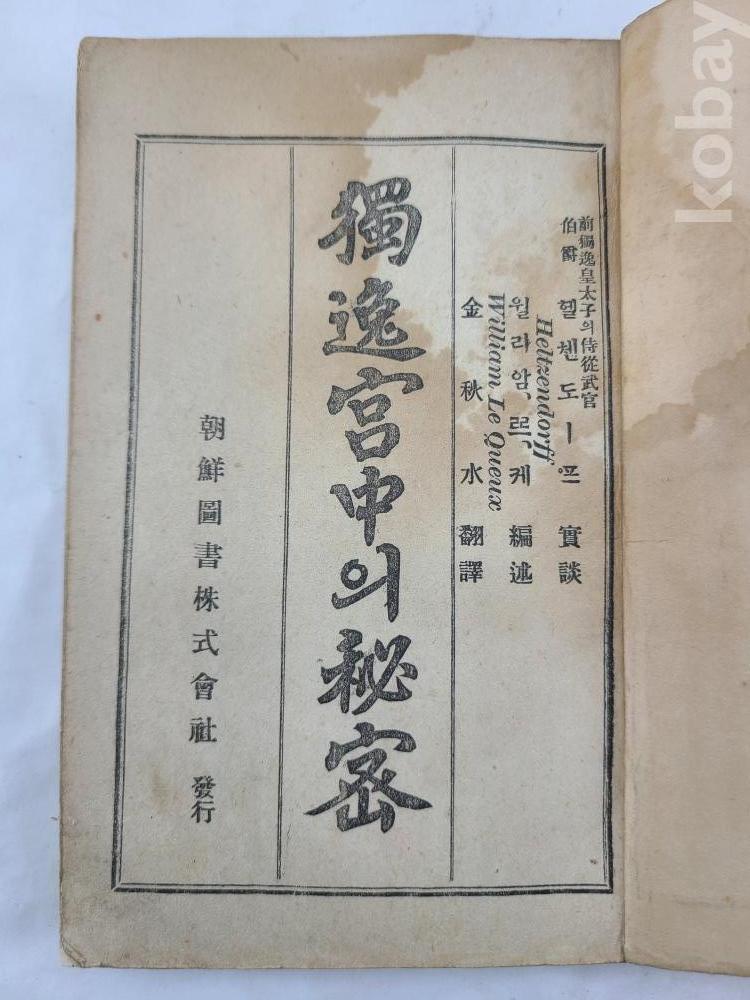 前獨逸皇太子의侍從武官
伯爵 헬첸도ㅡ프 實談
Heltzendorff
윌리암、르、케 編述
William Le Queux
金秋水 翻譯
獨逸宮中의秘密
朝鮮圖書株式會社 發行
kobay